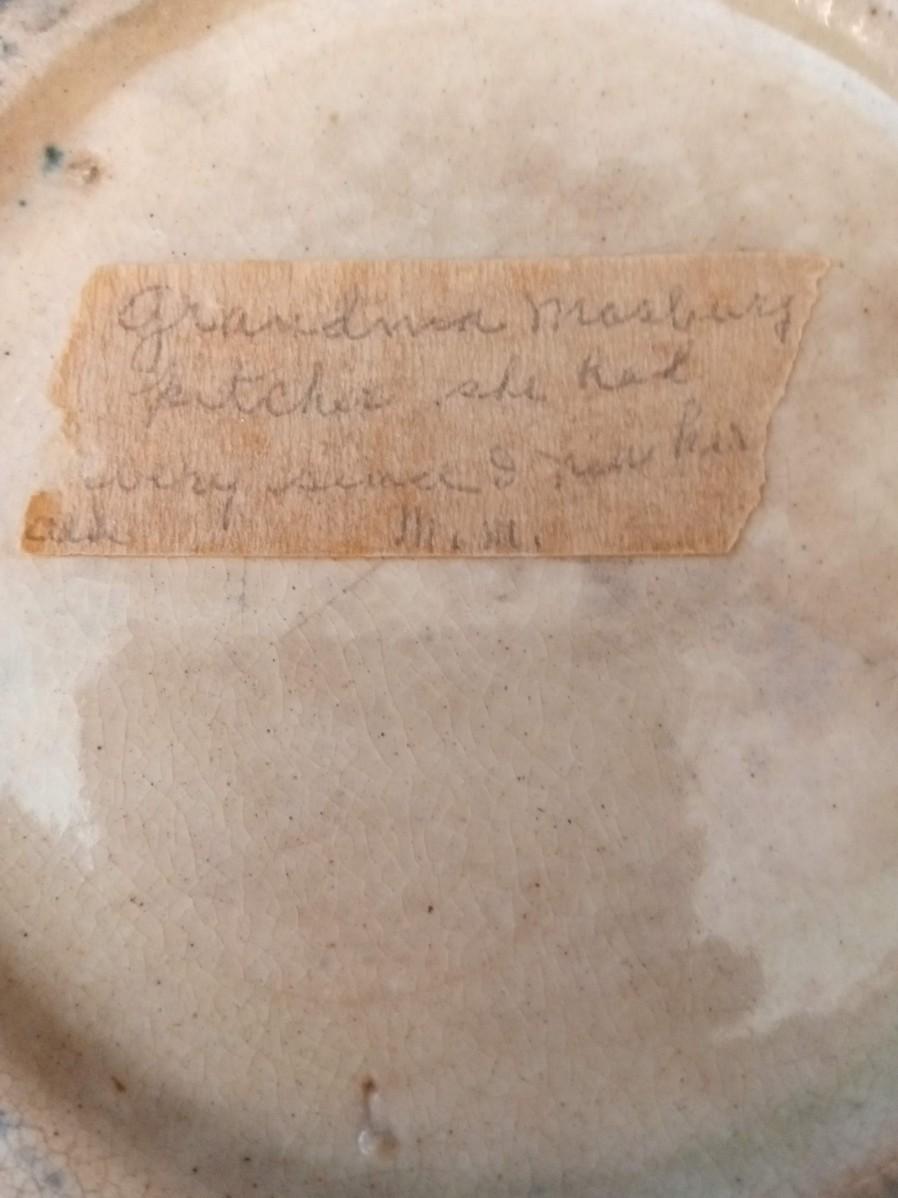 Grandma Mosburg
pitcher she had
every since I new her
M.M.